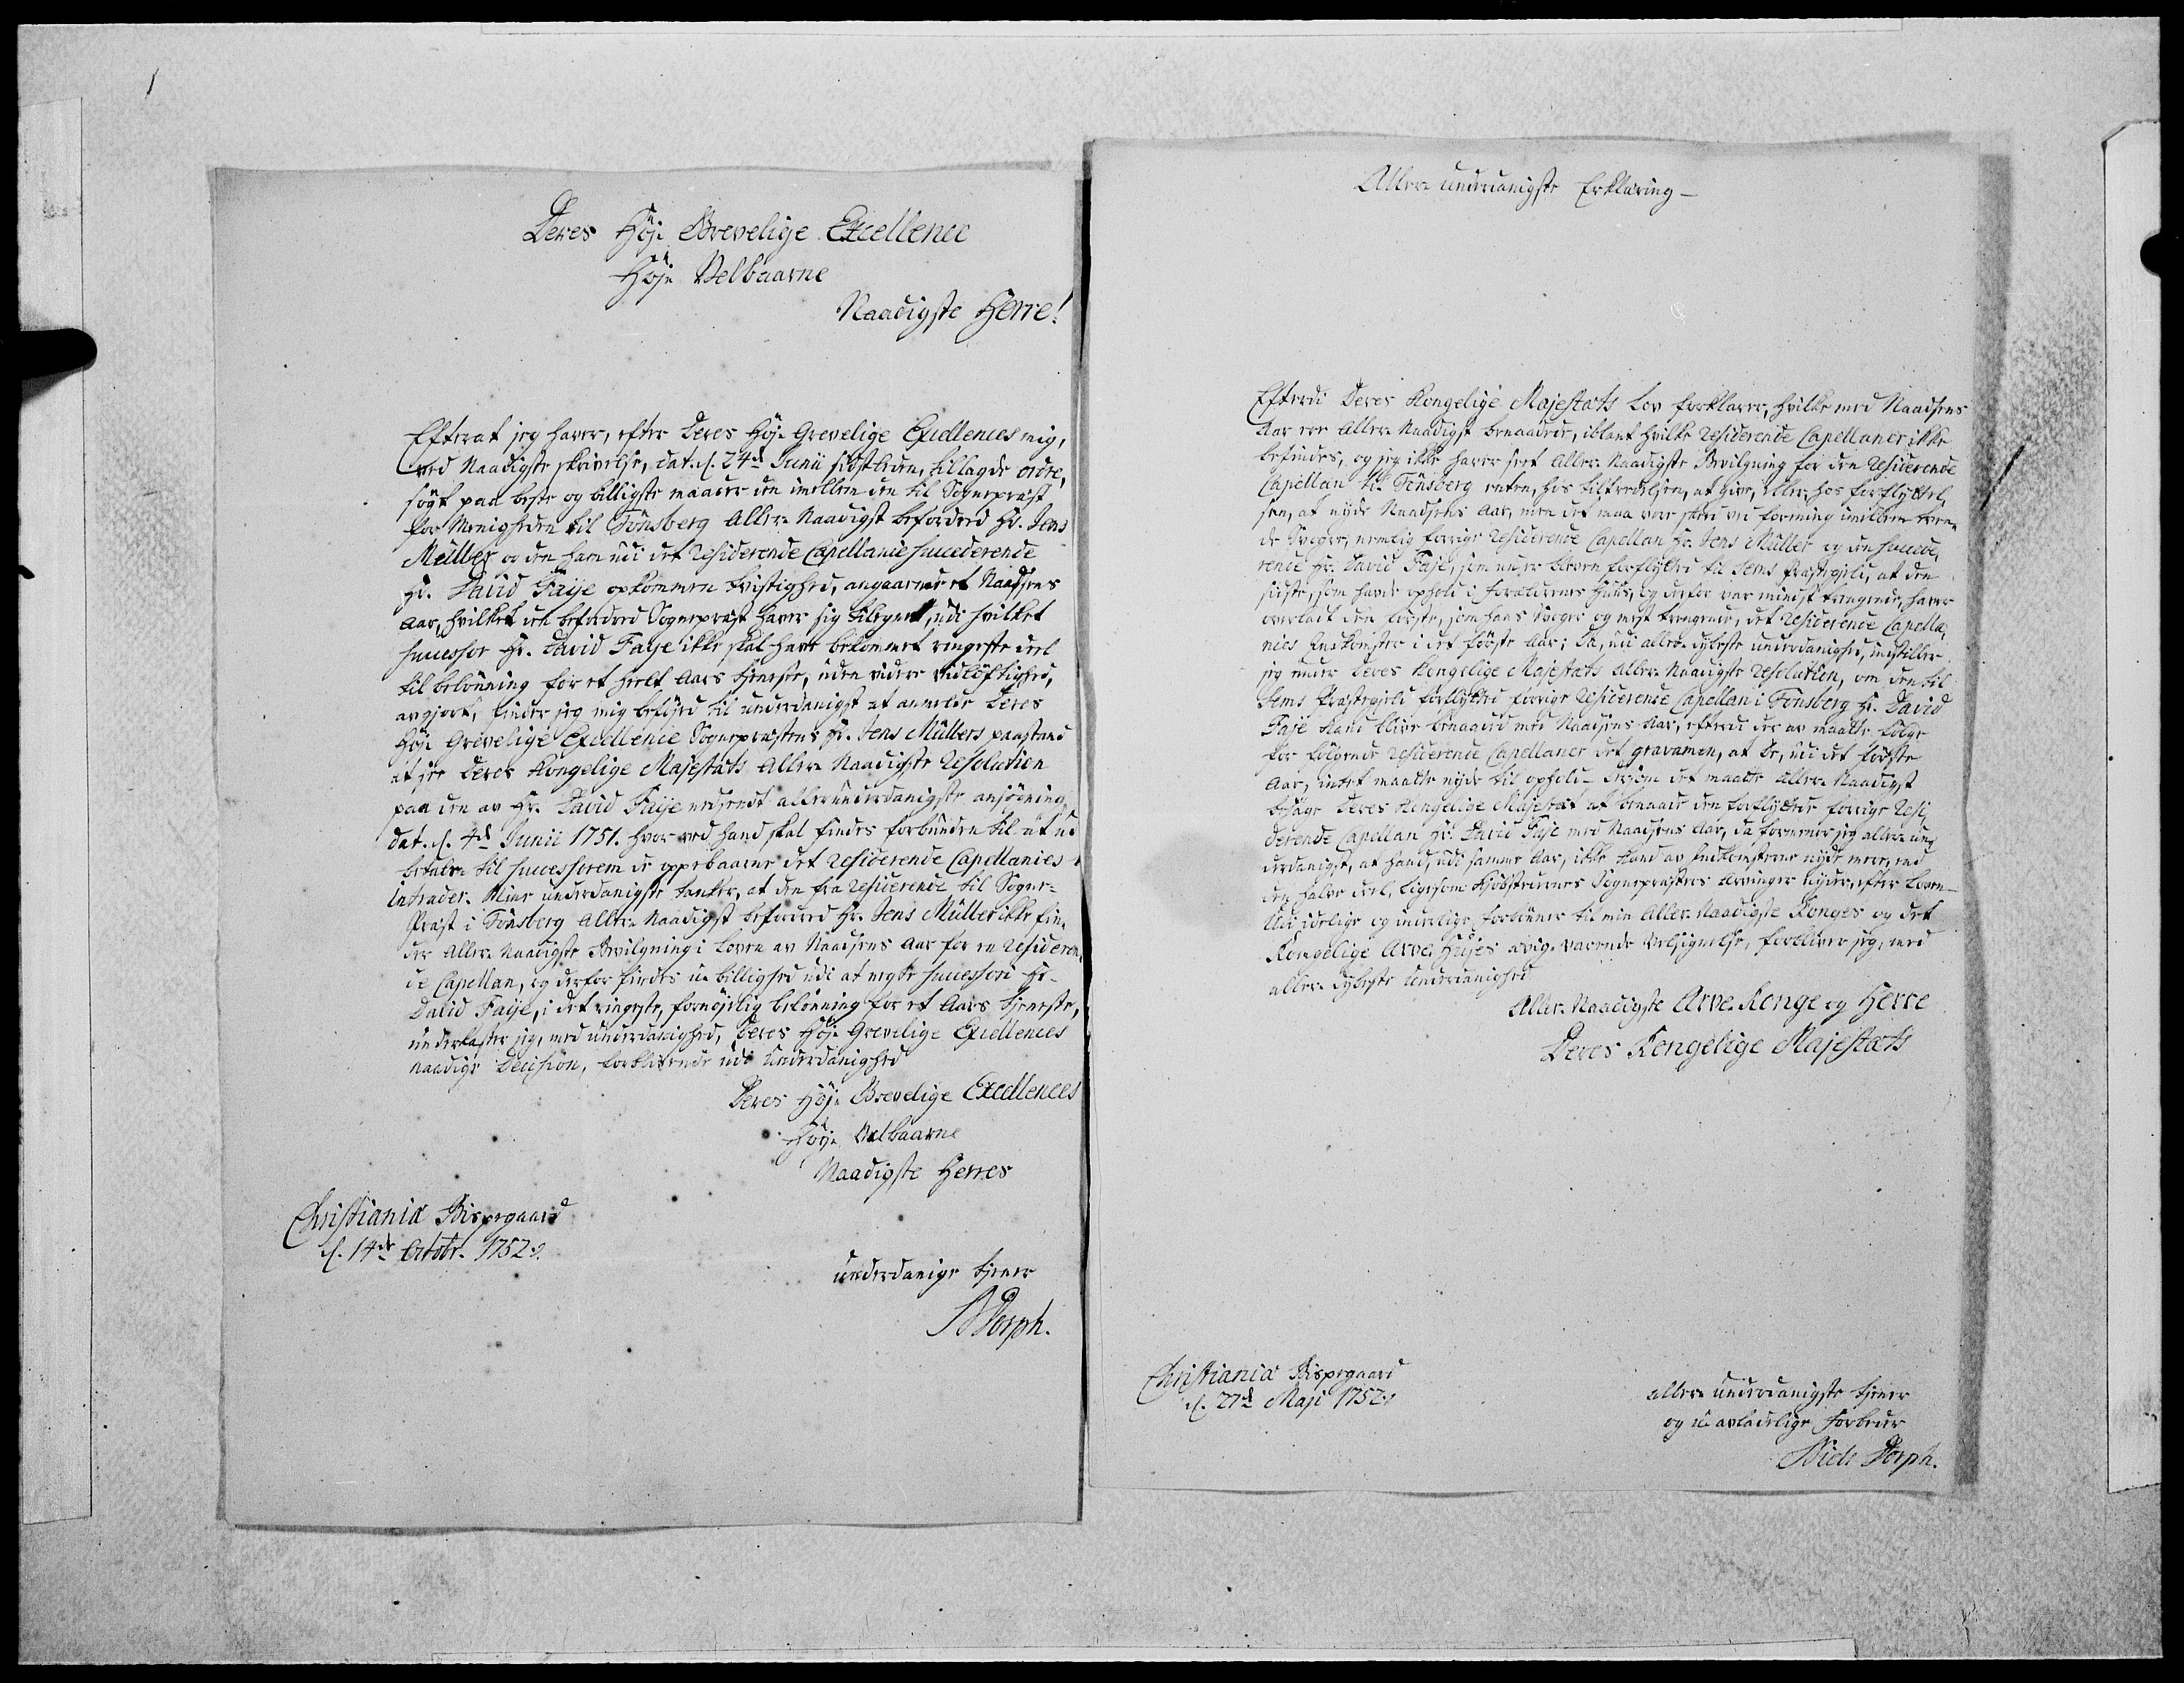 Deres Høje Grevelige Excellence
Høje Velbaarne
Naadigste Herre!
Efterat jeg haver, efter Deres Høje Grevelige Excellences mig,
ved Naadigste skrivelse, dat. d. 24de Junii sidstleden, tillagde ordre,
søgt paa beste og billigste maader den imellem den til Sognepræst
for Menigheden til Tønsberg Aller-Naadigst beforderd Hr. Jens
Müller og den ham udi det Residerende Capellanie succederende
Hr. David Faÿe opkommen tvistighed, angaaende et Naadsens
Aar, hvilket den beforderd Sognepræst haver sig tilegnet, udi hvilket
successor Hr. David Faÿe ikke skal have bekommet ringeste deel
til belønning for et heelt Aars tjeneste, uden videre vidløftighed,
avgjort, finder jeg mig beføjed til underdanigst at anmelde Deres
Høje Grevelige Excellence Sognepræstens Hr. Jens Müllers paastand
at see Deres Kongelige Majestæts Aller-Naadigste Resolution
paa den av Hr. David Faÿe indsendt allerunderdanigste ansøgning
dat. d. 4de Junii 1751. hvor ved hand skal findes forbunden til at ud
betale til successorem de oppebaarne det Residerende Capellanies
Intrader. Mine underdanigste tanker, at den fra residerende til Sogne-
Præst i Tønsberg Aller-Naadigst beforderd Hr. Jens Müller ikke fin-
der Aller-Naadigste Bevilgning i Loven av Naadsens Aar for en Residerен-
de Capellan, og derfor findes u-billighed udi at negte successori Hr.
David Faÿe, i det ringeste, fornøjelig belønning for et Aars tjeneste,
underkaster jeg, med underdanighed, Deres Høje Grevelige Excellences
naadige Decision, forblivende udi underdanighed
Deres Høje Grevelige Excellences
Høje Velbaarne
Naadigste Herres
Christiania Bispegaard
d. 14de Octobr. 1752.
underdanige tjener
N Dorph.
Aller-underdanigste Erklæring
Efterdi Deres Kongelige Majestæts Lov forklarer, hvilke med Naadsens
Aar ere Aller-Naadigst benaadede, iblant hvilke Residerende Capellaner ikke
befindes, og jeg ikke haver seet Aller-Naadigste Bevilgning for den Residerende
Capellan til Tønsberg enten, hos tiltrædelsen, at give, eller, hos forflyttel-
sen, at nyde Naadsens Aar, men det maa være skeed ved forening imellem tven-
de Svogre, nemlig forrige Residerende Capellan Hr. Jens Müller og den succede-
rende Hr. David Faÿe, som nu er bleven forflytted til Sems Præstegield, at den
sidste, som havde ophold i Forældrenes Huus, og derfor var mindst trængende, haver
overladt den første, som hans Svoger og mest trængende, det Residerende Capella-
nies Indkomster i det første Aar; Da, udi allerdybeste underdanighed, indstiller
jeg under Deres Kongelige Majestæts Aller-Naadigste Resolution, om den til
Sems Præstegield forflytted forrige Residerende Capellan i Tønsberg Hr. David
Faÿe kand blive benaaded med Naadsens Aar, efterdi der av maatte følge
for følgende Residerende Capellaner det gravamen, at de, udi det første
Aar, intet maatte nyde til ophold. Dersom det maatte aller-Naadigst
behage Deres Kongelige Majestæt at benaade den forflyttede forrige Resi-
derende Capellan Hr. David Faÿe med Naadsens Aar, da formener jeg aller-un-
derdanigst, at hand, udi samme Aar, ikke kand av Indkomsterne nyde meer, end
den halve deel, ligesom Kjøbstædernes Sognepræsters Arvinger nyder, efter Loven
Udi idelige og inderlige forbønner til min Aller-Naadigste Konges og det
Kongelige Arve-Huses evig-varende Velsignelse, forbliver jeg, med
aller-dybeste Underdanighed
Aller-Naadigste Arve-Konge og Herre
Deres Kongelige Majestæts
Christiania Bispegaard
d. 27de Maji 1752.
aller-underdanigste tjener
og u-avladelige forbeder
Niels Dorph.